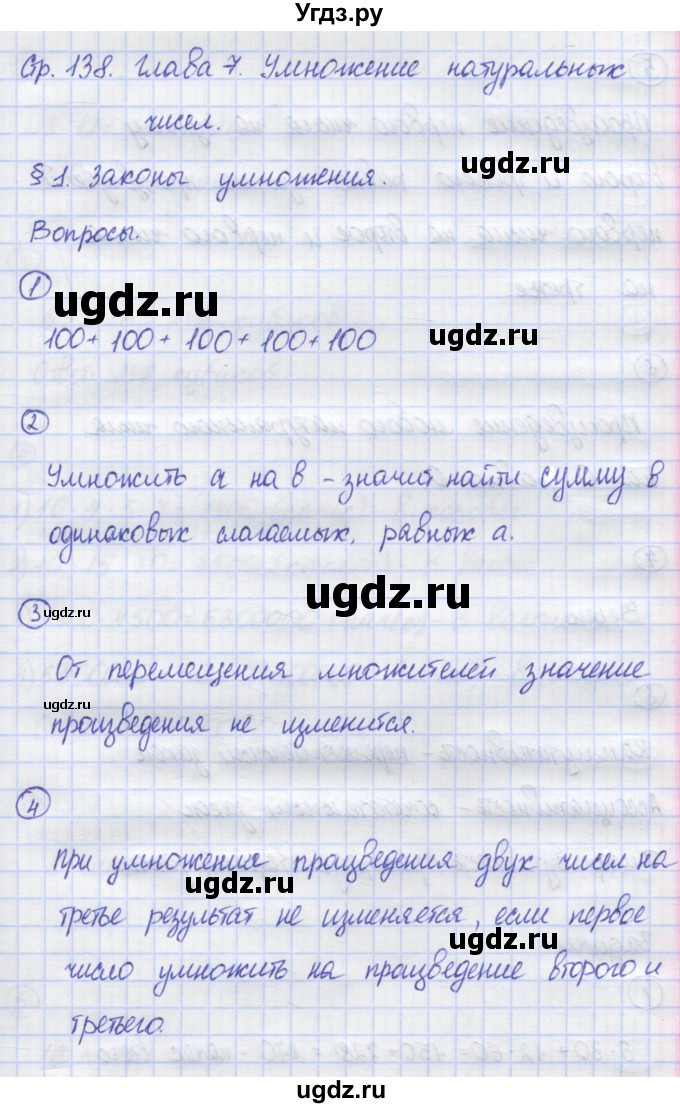 Угдз.ру
Стр. 138. Глава 7. Умножение натуральных
чисел.
ugdz.ru
§ 1. Законы умножения.
Вопросы.
1
ugdz.ru
100+ 100 + 100 + 100 + 100
ugdz.ru
2
Умножить a на b – значит найти сумму b
одинаковых слагаемых, равных a.
ugdz.ru
3
ugdz.ru
От перемещения множителей значение
ugdz.ru
произведения не изменится.
4
При умножении працведения двух чисел на
ugdz.ru
третье результат не изменяется, если первое
ugdz.ru
число умножить на працведение второго и
третьего.
ugdz.ru